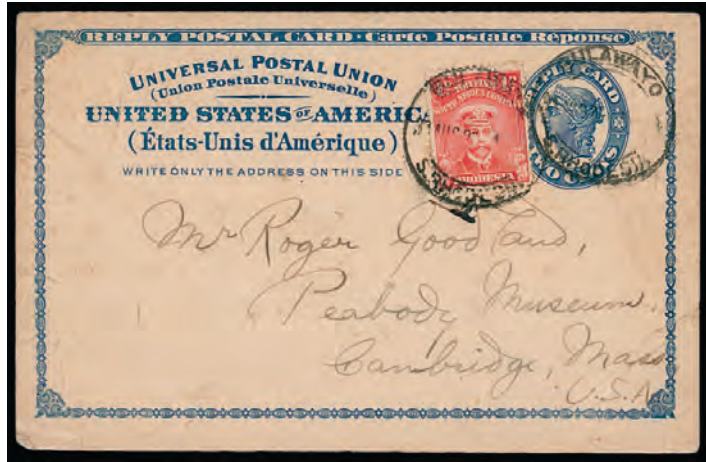 REPLY POSTAL CARD · Carte Postale Réponse
UNIVERSAL POSTAL UNION
(Union Postale Universelle)
UNITED STATES OF AMERIC
(États-Unis d'Amérique)
WRITE ONLY THE ADDRESS ON THIS SIDE
BRITISH
SOUTH AFRICA COMPANY
RHODESIA
REPLY CARD
TWO CENTS
BULAWAYO
S. RHODESIA
Mr Roger Goodland,
Peabody Museum.
Cambridge, Mass
U.S.A.